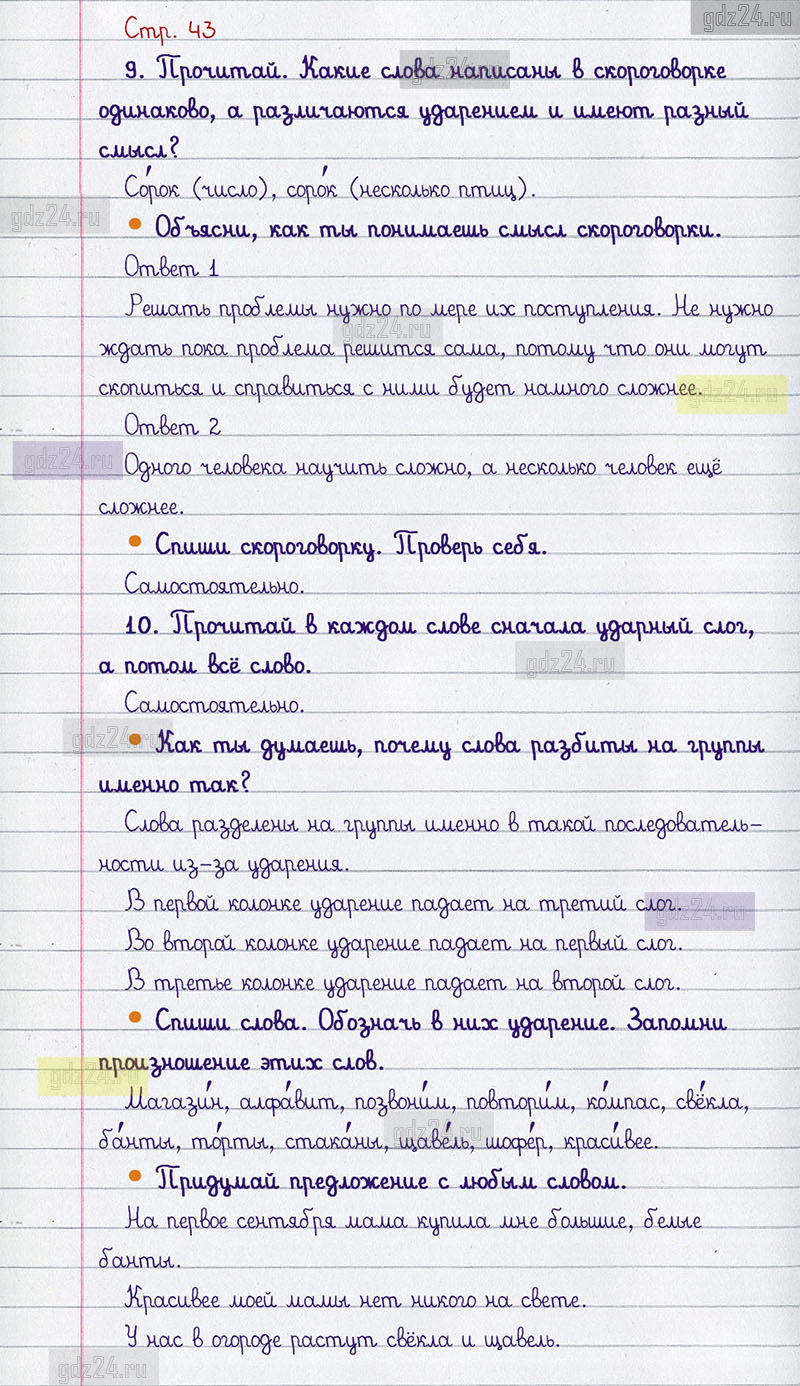 gdz24.ru
Стр. 43
9. Прочитай. Какие слова написаны в скороговорке
gdz24.ru
одинаково, а различаются ударением и имеют разный
смысл?
Со́рок (число), соро́к (несколько птиц).
gdz24.ru
• Объясни, как ты понимаешь смысл скороговорки.
Ответ 1
Решать проблемы нужно по мере их поступления. Не нужно
gdz24.ru
ждать пока проблема решится сама, потому что они могут
скопиться и справиться с ними будет намного сложнее.
gdz24.ru
Ответ 2
gdz24.ru
Одного человека научить сложно, а несколько человек ещё
сложнее.
• Спиши скороговорку. Проверь себя.
Самостоятельно.
10. Прочитай в каждом слове сначала ударный слог,
а потом всё слово.
gdz24.ru
Самостоятельно.
gdz24.ru
• Как ты думаешь, почему слова разбиты на группы
именно так?
Слова разделены на группы именно в такой последователь-
ности из-за ударения.
В первой колонке ударение падает на третий слог.
gdz24.ru
Во второй колонке ударение падает на первый слог.
В третье колонке ударение падает на второй слог.
• Спиши слова. Обозначь в них ударение. Запомни
произношение этих слов.
gdz24.ru
Магази́н, алфа́вит, позвони́м, повтори́м, ко́мпас, свёкла,
gdz24.ru
ба́нты, то́рты, стака́ны, щаве́ль, шофе́р, краси́вее.
• Придумай предложение с любым словом.
На первое сентября мама купила мне большие, белые
банты.
Красивее моей мамы нет никого на свете.
У нас в огороде растут свёкла и щавель.
gdz24.ru